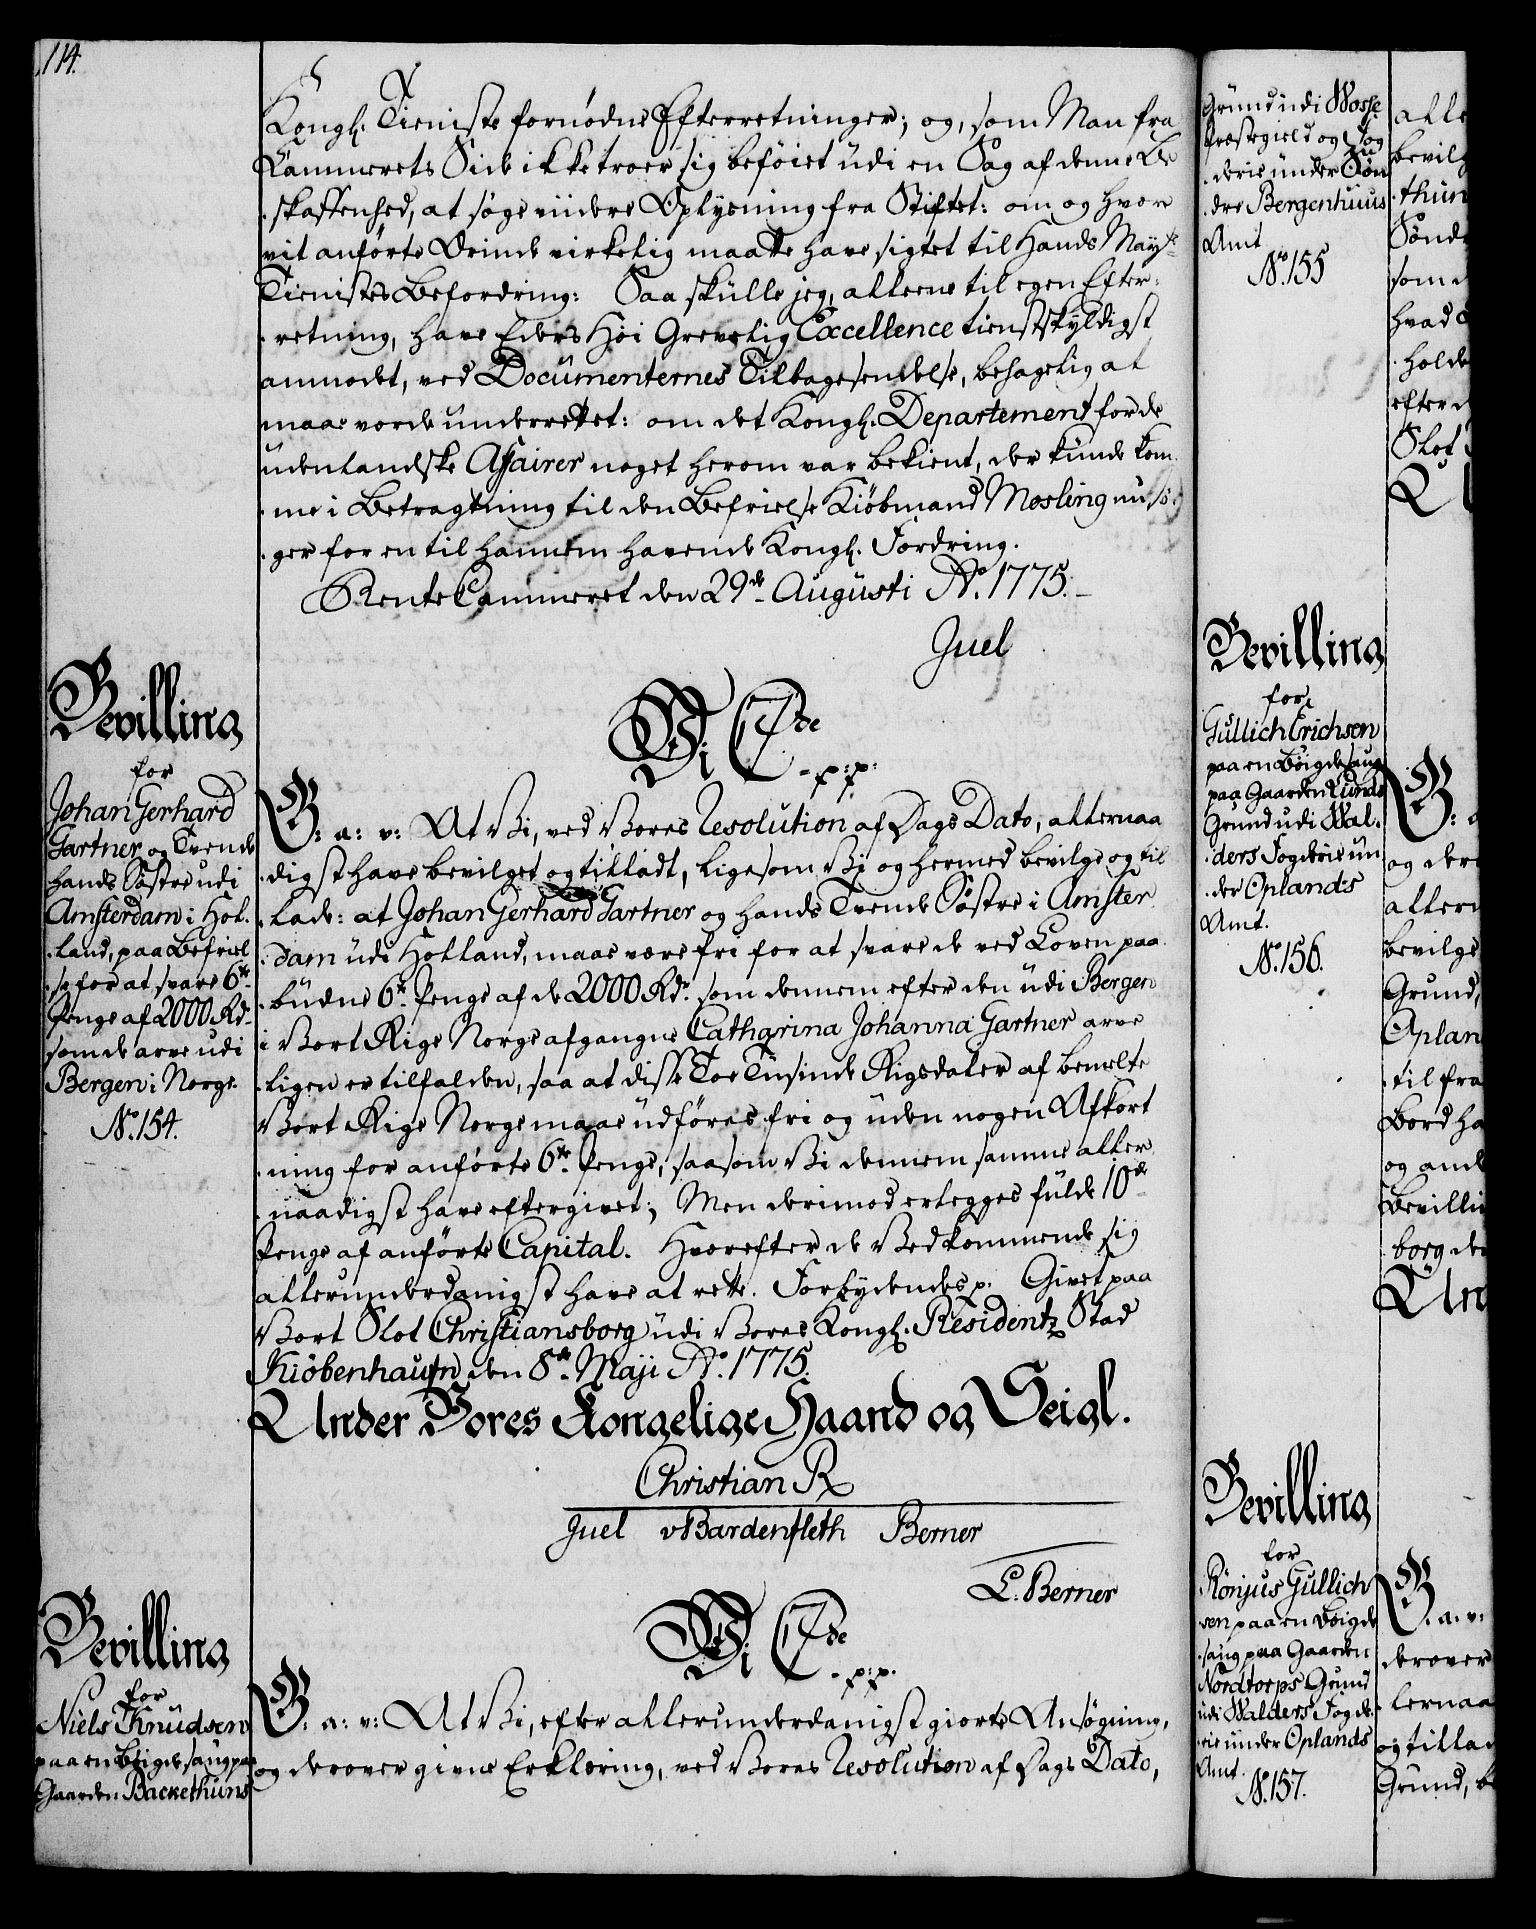 114.
Kongl. Tieniste fornødne Efterretninger; og, som Man fra
Cammerets Side ikke troer sig beföiet udi en Sag af denne Be
skaffenhed, at søge viidere Oplysning fra Stiftet: om og hvor
vit anførte Ærinde virkelig maatte have sigtet til Hands Mayts
Tienistes Befordring: Saa skulle jeg, alleene til egen Efter-
retning, have Eders Høi Grevelig Excellence tienstskyldigst
anmodet, ved Documenternes Tilbagesendelse, behagelig at
maae vorde underrettet: om det Kongl. Departement for de
udenlandske Affairer noget herom var bekient, der kunde kom
me i Betragtning til den Befrielse Kiöbmand Mosling nu sö
ger for en til hannem havende Kongl. Fordring.
Rente Cammeret den 29de Augusti Ao. 1775.
Juel
Bevilling
for
Johan Gerhard
Gartner og Tvende
hands Søstre udi
Amsterdam i Hol-
land, paa Befriel
se for at svare 6te
Penge af 2000 Rdr
som de arve udi
Bergen i Norge.
No. 154.
Vi C 7de
p: p:
G: a: v: At Vi, ved Vores Resolution af Dags Dato, allernaa
digst have bevilget og tilladt, ligesom Vi og hermed bevilge og til
lade: at Johan Gerhard Gartner og hands Tvende Søstre i Amster
dam udi Holland, maae være fri for at svare de ved Loven paa
budne 6te Penge af de 2000 Rdr. som dennem efter den udi Bergen
i Vort Rige Norge afgangne Catharina Johanna Gartner arve
ligen er tilfalden, saa at disse Toe Tusinde Rigsdaler af bemelte
Vort Rige Norge maae udføres fri og uden nogen Afkort
ning for anførte 6te Penge, saasom Vi dennem samme aller
naadigst have eftergivet; Men derimod erlegges fulde 10de
Penge af anførte Capital. Hvorefter de Vedkommende sig
allerunderdanigst have at rette. Forbydendes p. Givet paa
Vort Slot Christiansborg udi Vores Kongl. Residentz Stad
Kiöbenhaufn, den 8de Maji Ao. 1775.
Under Vores Kongelige Haand og Seigl.
Christian R
Juel vBardenfleth Berner
L: Berner
Bevilling
for
Niels Knudsen
paa en Böigde saug paa
Gaarden Backethuns
Vi C 7de
p: p.
G: a: v: At Vi, efter allerunderdanigst giorte Ansøgning,
og derover givne Erklæring, ved Vores Resolution af Dags Dato,
Grund udi Wosse
Præstegield og Fog
derie under Søn
dre Bergenhuus
Amt
No. 155
Bevilling
for
Gullich Erichsen
paa en Böigde saug
paa Gaarden Lunde
Grund udi Wal-
ders Fogderie un
der Oplands
Amt.
No. 156.
Bevilling
for
Rönjus Gullich
sen paa en Böigde
saug paa Gaarden
Nordtorps Grund
udi Walders Fogde
rie under Oplands
Amt.
No. 157.
alle
bevilg
thun
Sønd
som
hvad
holde
efter
Slot
G:
og der
aller
bevilge
Grund,
Oplan
til fra
Bord ha
og and
Bevilli
borg de
Un
G: a: v:
derover
lernaa
og tilla
Grund, b